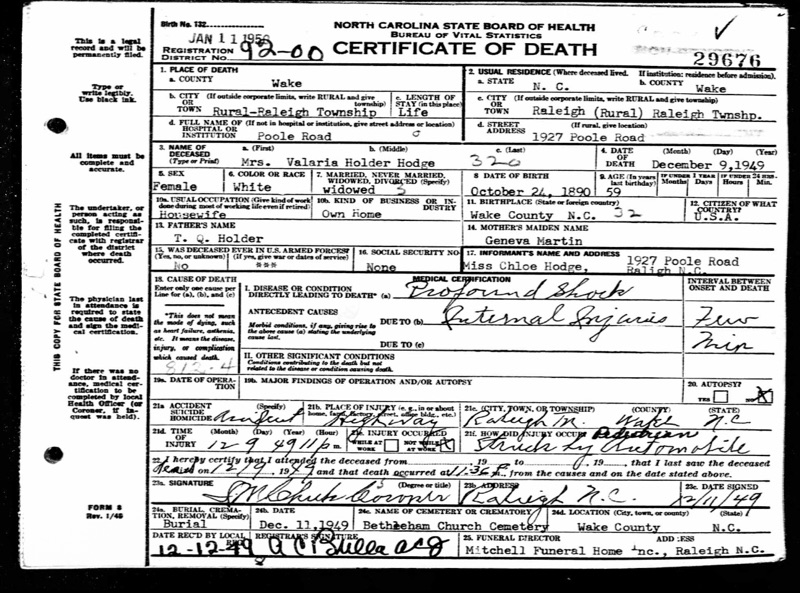 Birth No. 132
NORTH CAROLINA STATE BOARD OF HEALTH
BUREAU OF VITAL STATISTICS
CERTIFICATE OF DEATH
JAN 11 1950
REGISTRATION DISTRICT No. 92-00
29676
This is a legal record and will be permanently filed.
Type or write legibly. Use black ink.
All items must be complete and accurate.
The undertaker, or person acting as such, is responsible for filing the completed certificate with registrar of the district where death occurred.
The physician last in attendance is required to state the cause of death and sign the medical certification.
If there was no doctor in attendance, medical certification to be completed by local Health Officer (or Coroner, if inquest was held).
FORM 8
Rev. 1/45
THIS COPY FOR STATE BOARD OF HEALTH
1. PLACE OF DEATH
a. COUNTY Wake
b. CITY (If outside corporate limits, write RURAL and give township) OR TOWN Rural-Raleigh Township
c. LENGTH OF STAY (in this place) Life
d. FULL NAME OF (If not in hospital or institution, give street address or location) HOSPITAL OR INSTITUTION Poole Road
2. USUAL RESIDENCE (Where deceased lived. If institution: residence before admission).
a. STATE N. C.
b. COUNTY Wake
c. CITY (If outside corporate limits, write RURAL and give township) OR TOWN Raleigh (Rural) Raleigh Twnshp.
d. STREET ADDRESS (If rural, give location) 1927 Poole Road
3. NAME OF DECEASED (Type or Print)
a. (First) b. (Middle) c. (Last)
Mrs. Valaria Holder Hodge 320
4. DATE OF DEATH (Month) (Day) (Year) December 9,1949
5. SEX Female
6. COLOR OR RACE White
7. MARRIED, NEVER MARRIED, WIDOWED, DIVORCED (Specify) widowed 3
8 DATE OF BIRTH October 24, 1890
9. AGE (In years last birthday) 59
IF UNDER 1 YEAR Months Days
IF UNDER 24 HRS. Hours Min.
10a. USUAL OCCUPATION (Give kind of work done during most of working life even if retired) Housewife
10b. KIND OF BUSINESS OR INDUSTRY Own Home
11. BIRTHPLACE (State or foreign country) Wake County N.C. 32
12. CITIZEN OF WHAT COUNTRY? U.S.A.
13. FATHER'S NAME T. Q. Holder
14. MOTHER'S MAIDEN NAME Geneva Martin
15. WAS DECEASED EVER IN U.S. ARMED FORCES? (Yes, no, or unknown) (If yes, give war or dates of service) No ***
16. SOCIAL SECURITY NO. None
17. INFORMANT'S NAME AND ADDRESS Miss Chloe Hodge, 1927 Poole Road
Raligh N.C.
18. CAUSE OF DEATH
Enter only one cause per Line for (a), (b), and (c)
*This does not mean the mode of dying, such as heart failure, asthenia, etc. It means the disease, injury, or complication which caused death.
812.4
MEDICAL CERTIFICATION
INTERVAL BETWEEN ONSET AND DEATH
I. DISEASE OR CONDITION DIRECTLY LEADING TO DEATH* (a) Profound Shock
ANTECEDENT CAUSES
Morbid conditions, if any, giving rise to the above cause (a) stating the underlying cause last.
DUE TO (b) Internal Injuries Few Min
DUE TO (c)
II. OTHER SIGNIFICANT CONDITIONS
Conditions contributing to the death but not related to the disease or condition causing death.
19a. DATE OF OPERATION
19b. MAJOR FINDINGS OF OPERATION AND/OR AUTOPSY
20. AUTOPSY?
YES NO X
21a ACCIDENT SUICIDE HOMICIDE (Specify) Accident
21b. PLACE OF INJURY (e. g., in or about home, farm, factory, street, office bldg., etc.) Highway
21c. (CITY, TOWN, OR TOWNSHIP) (COUNTY) (STATE)
Raleigh Wake N.C
21d. TIME OF INJURY (Month) (Day) (Year) (Hour) 12 9 49 11 P m.
21e. INJURY OCCURRED WHILE AT WORK NOT WHILE AT WORK
21f. HOW DID INJURY OCCUR? Pedestrian
Struck by Automobile
22. I hereby certify that I attended the deceased from 19 to 19, that I last saw the deceased
on 12/9 1949 and that death occurred at 11:36 P m., from the causes and on the date stated above.
23a. SIGNATURE (Degree or title) Coroner
23b. ADDRESS Raleigh N.C.
23c. DATE SIGNED 12/11/49
24a. BURIAL, CREMATION, REMOVAL (Specify) Burial
24b. DATE Dec. 11,1949
24c. NAME OF CEMETERY OR CREMATORY Bethleham Church Cemetery
24d. LOCATION (City, town, or county) (State) Wake County N.C.
DATE REC'D BY LOCAL REG. 12-12-49
REGISTRAR'S SIGNATURE
25. FUNERAL DIRECTOR ADDRESS
Mitchell Funeral Home Inc., Raleigh N.C.